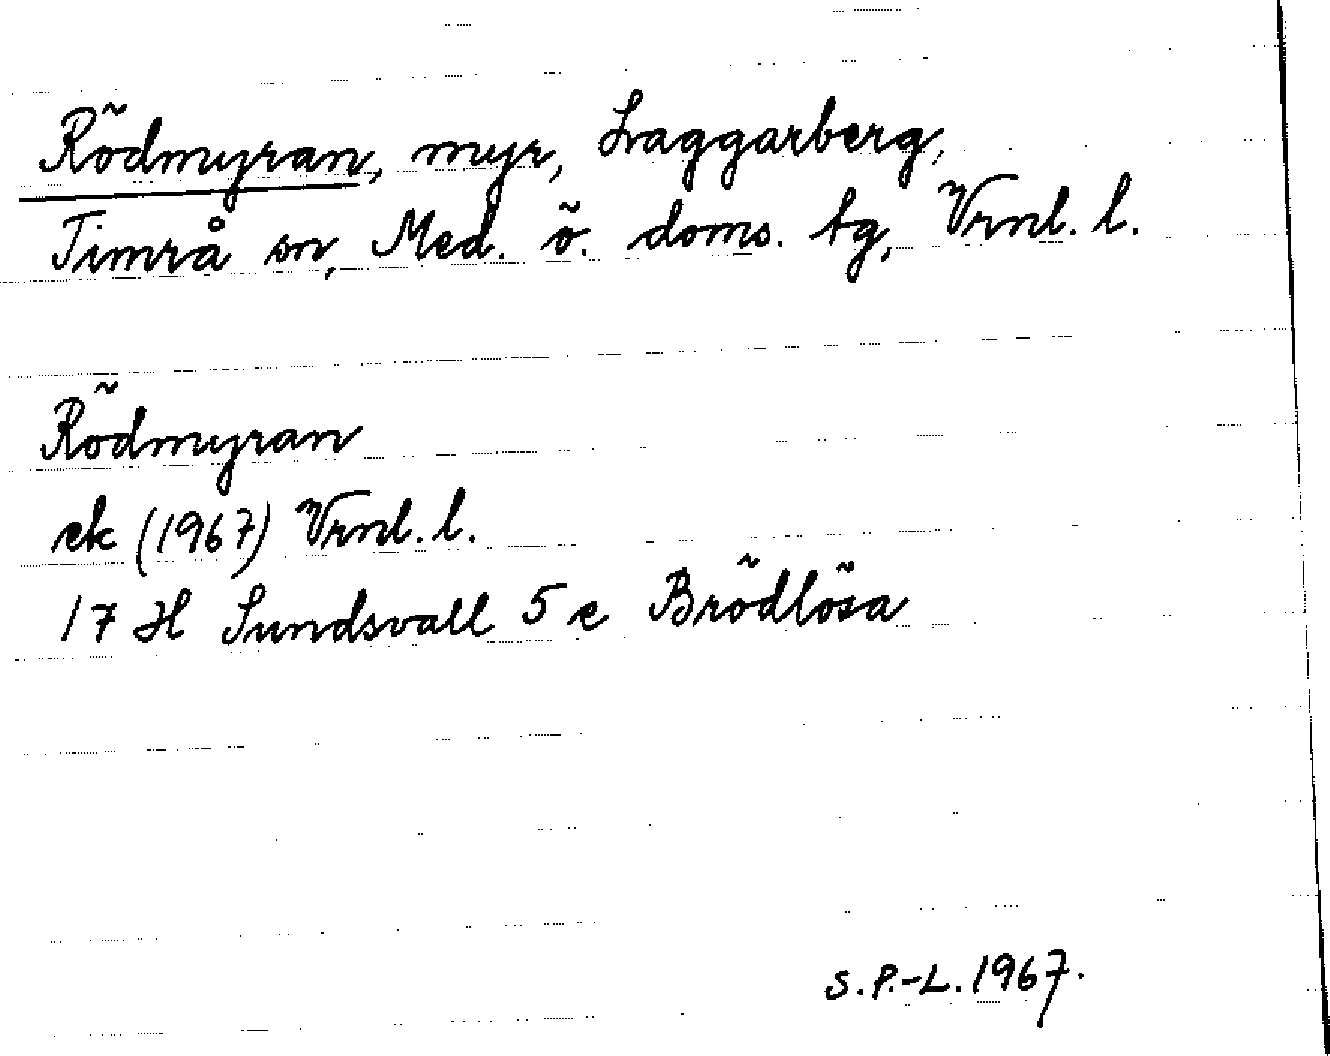 Rödmyran, myr, Laggarberg,
Timrå sn, Med. ö. doms. tg, Vrnl. l.
Rödmyran
ek (1967) Vrnl. l.
17 H Sundsvall 5 e Brödlösa
S.P.-L. 1967.